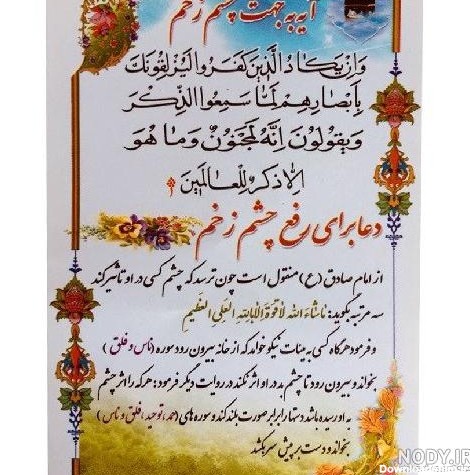 آیه به جهت چشم زخم
وَاِنْ يَكٰادُ الَّذِينَ كَفَرُوا لَيُزْلِقُونَكَ
بِاَبْصٰارِهِمْ لَمّٰا سَمِعُوا الذِّكْرَ
وَيَقُولُونَ اِنَّهُ لَمَجْنُونٌ وَمٰا هُوَ
اِلّٰا ذِكْرٌ لِلْعٰالَمِينَ
دعا برای رفع چشم زخم
از امام صادق (ع) منقول است چون ترسد که چشم کسی در او تاثیر کند
سه مرتبه بگوید: ماشاءَ الله لا قُوةَ اِلّا بِاللهِ العَلیِ العَظیمِ
و فرمود هرگاه کسی به هیئات نیکو خواهد که از خانه بیرون رود سوره (ناس و فلق)
بخواند و بیرون رود تا چشم بد در او اثر نکند در روایت دیگر فرمود: هر که را اثر چشم
به او رسیده باشد دستها را برابر صورت بلند کند و سوره های (حمد، توحید، فلق و ناس)
بخواند و دست بر پیش سر بکشد
NODY.IR